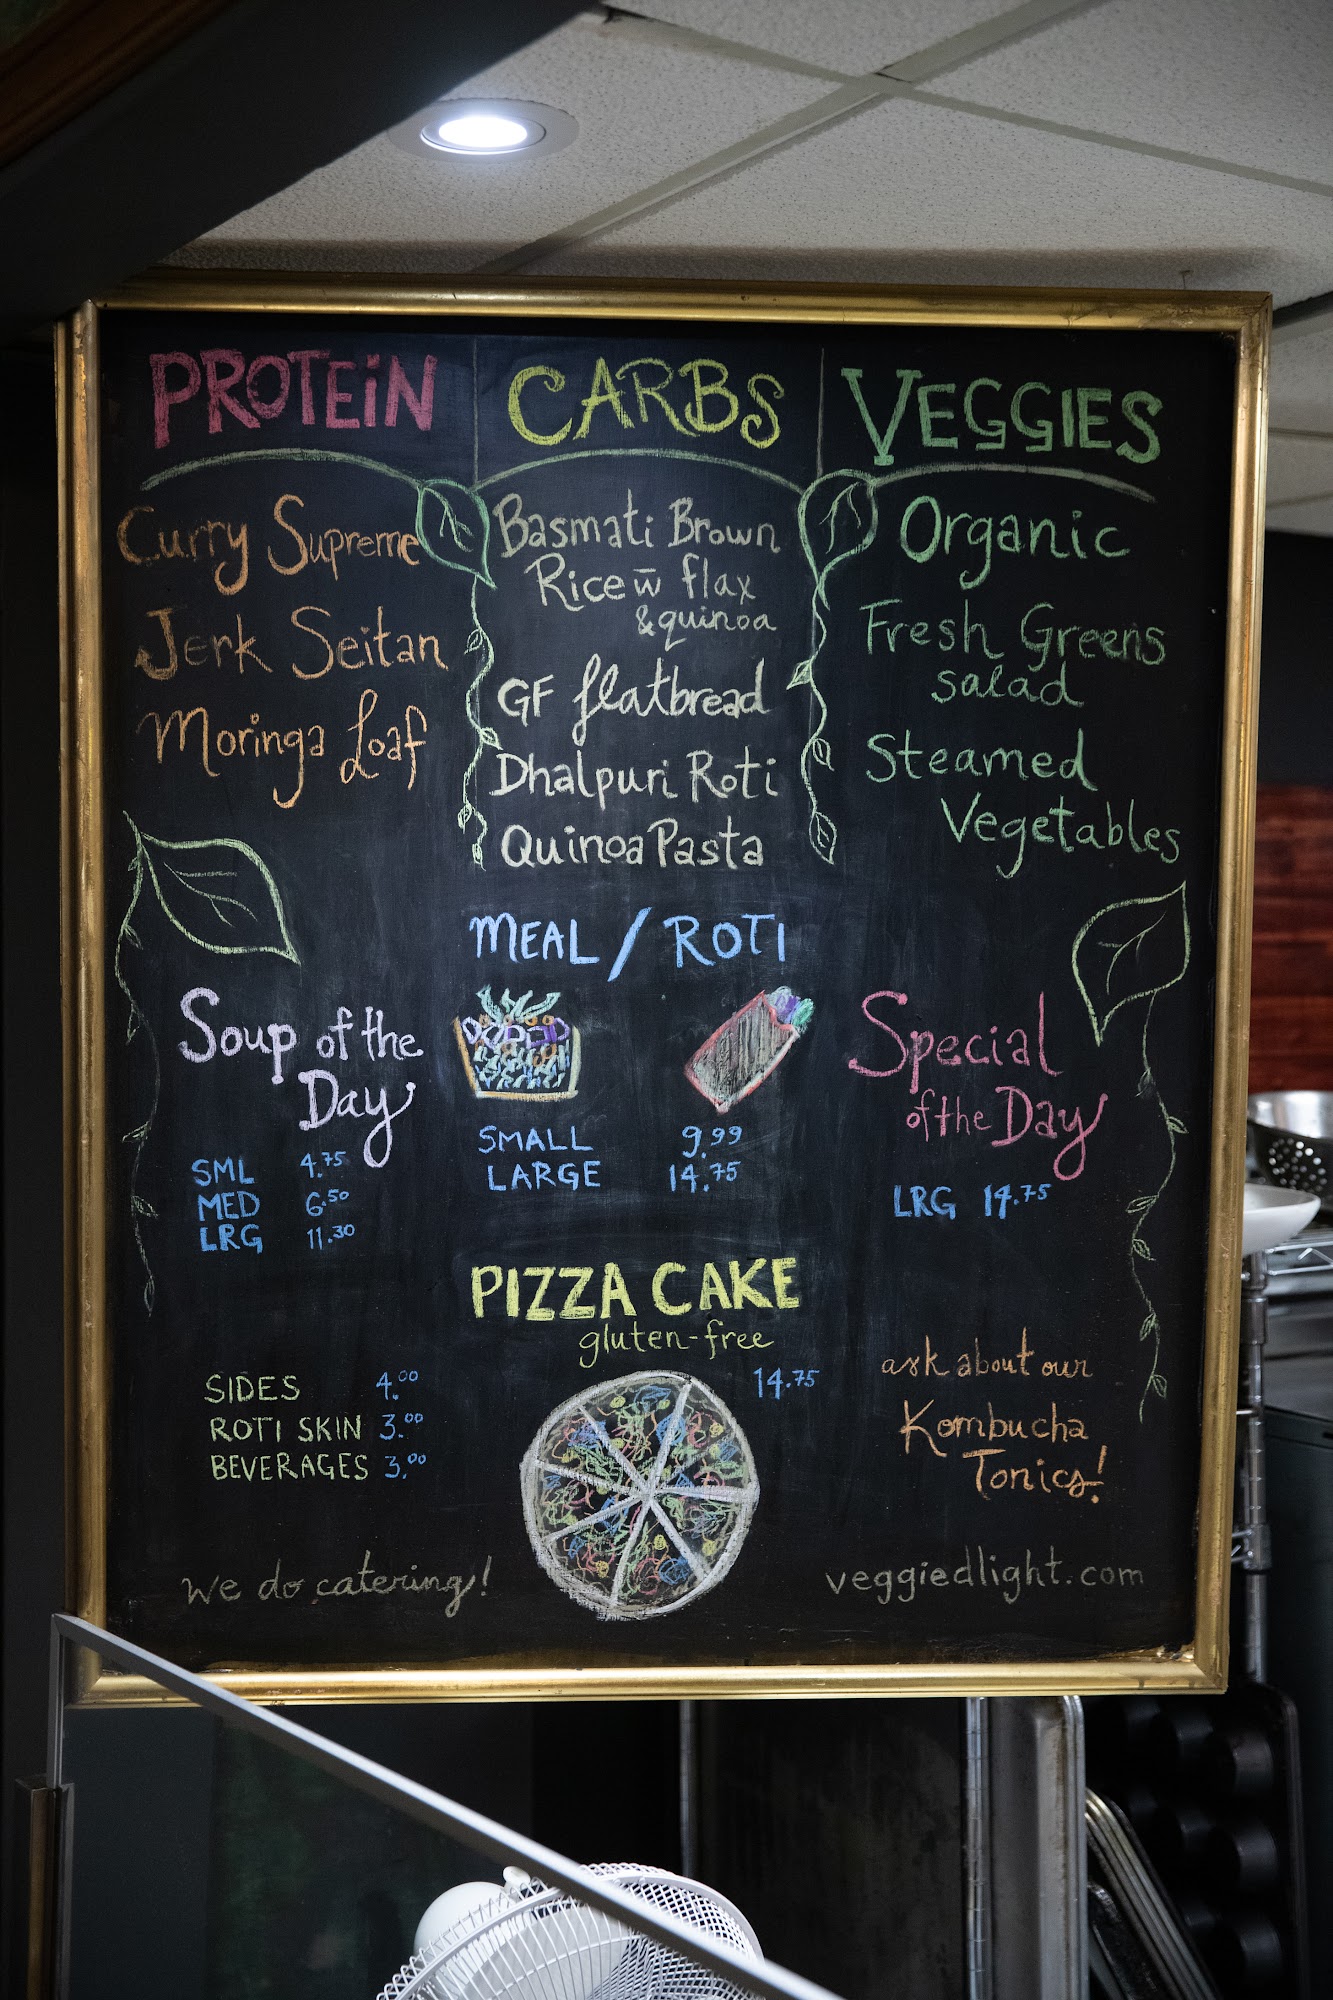 PROTEiN
Curry Supreme
Jerk Seitan
Moringa Loaf
CARBS
Basmati Brown
Rice w̄ flax
& quinoa
GF flatbread
Dhalpuri Roti
Quinoa Pasta
VEGGIES
Organic
Fresh Greens
salad
Steamed
Vegetables
MEAL / ROTI
SMALL 9.99
LARGE 14.75
Soup of the
Day
SML 4.75
MED 6.50
LRG 11.30
Special
of the Day
LRG 14.75
PIZZA CAKE
gluten-free
14.75
SIDES 4.00
ROTI SKIN 3.00
BEVERAGES 3.00
ask about our
Kombucha
Tonics!
we do catering!
veggiedlight.com